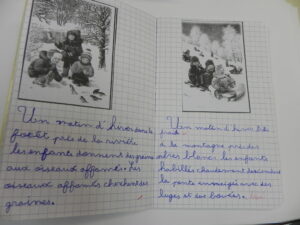 Un matin d'hiver dans la
forêt près de la rivière
les enfants donnent des graines
aux oiseaux affamés. Les
oiseaux affamés cherchent des
graines.
Un matin d'hiver très
froid
à la montagne près des
arbres blancs les enfants
habillés chaudement descendent
la pente enneigée avec des
luges et des bouées.